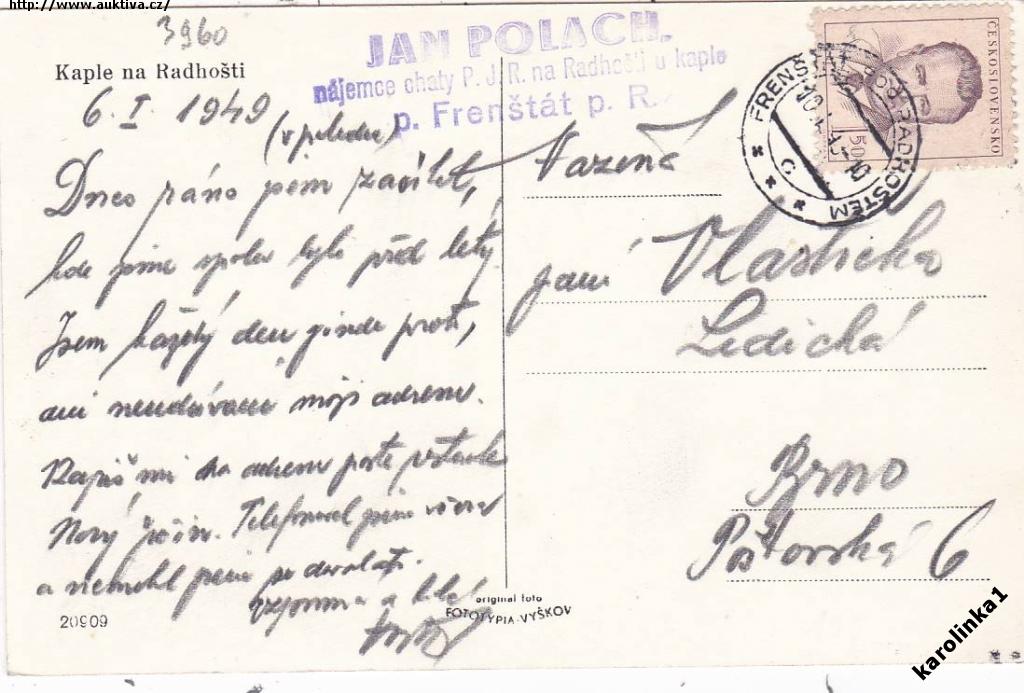 http://www.auktiva.cz/
3960
Kaple na Radhošti
JAN POLACH,
nájemce chaty P. J. R. na Radhošti u kaple
p. Frenštát p. R.
6. I. 1949
(v poledne)
Dnes ráno jsem začal
kde jsme spolu byli před lety.
Jsem každý den jinde proto,
ani neudávám moji adresu.
Napiš mi na adresu poste restante
Nový Jičín. Telefonoval jsem včera
a nemohl jsem se dovolati.
Vzpomíná a líbá
20909
ČESKOSLOVENSKO
1.50
FRENŠTÁT POD RADHOŠTĚM
C
Vážená
paní Vlastička
Ledická
Brno
Poštovská 6
original foto
FOTOTYPIA-VYŠKOV
karolinka1